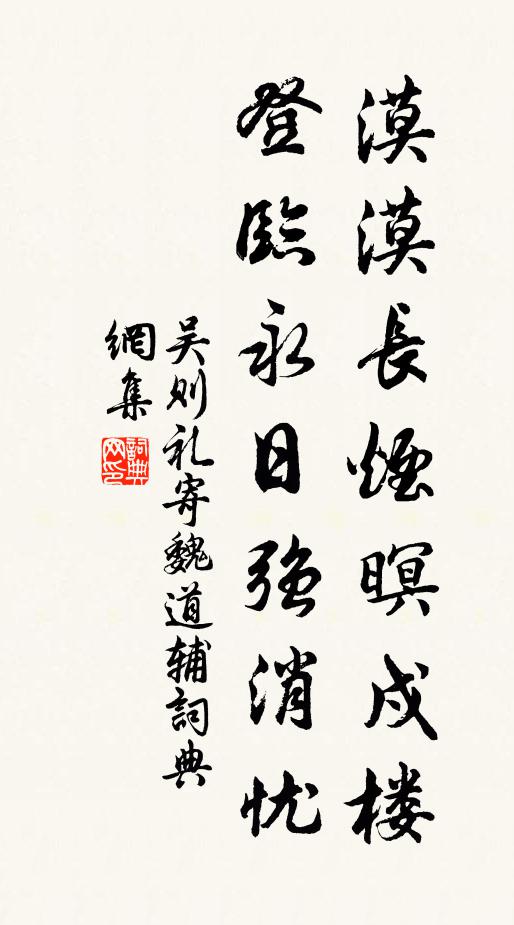 漠漠長煙暝戍楼
登臨永日強消忧
吴则礼寄魏道辅詞典
網集
詞典网印